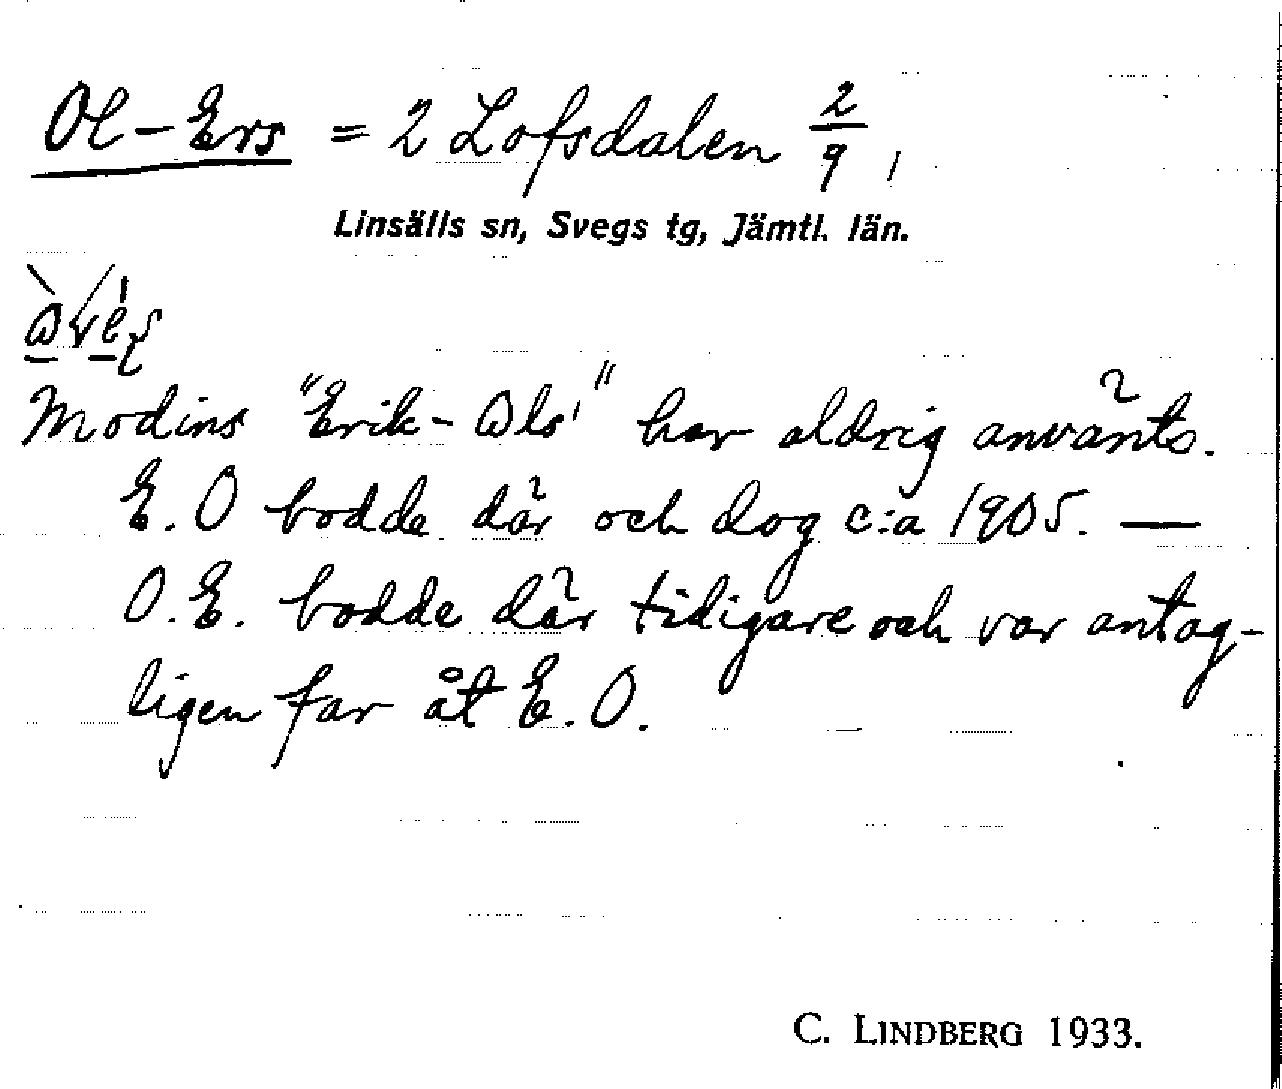 Ol-Ers = 2 Lofsdalen 2/9,
Linsälls sn, Svegs tg, Jämtl. län.
Modins "Erik-Ols'" har aldrig använts.
E. O bodde där och dog c:a 1905. —
O. E. bodde där tidigare och var antag-
ligen far åt E. O.
C. LINDBERG 1933.